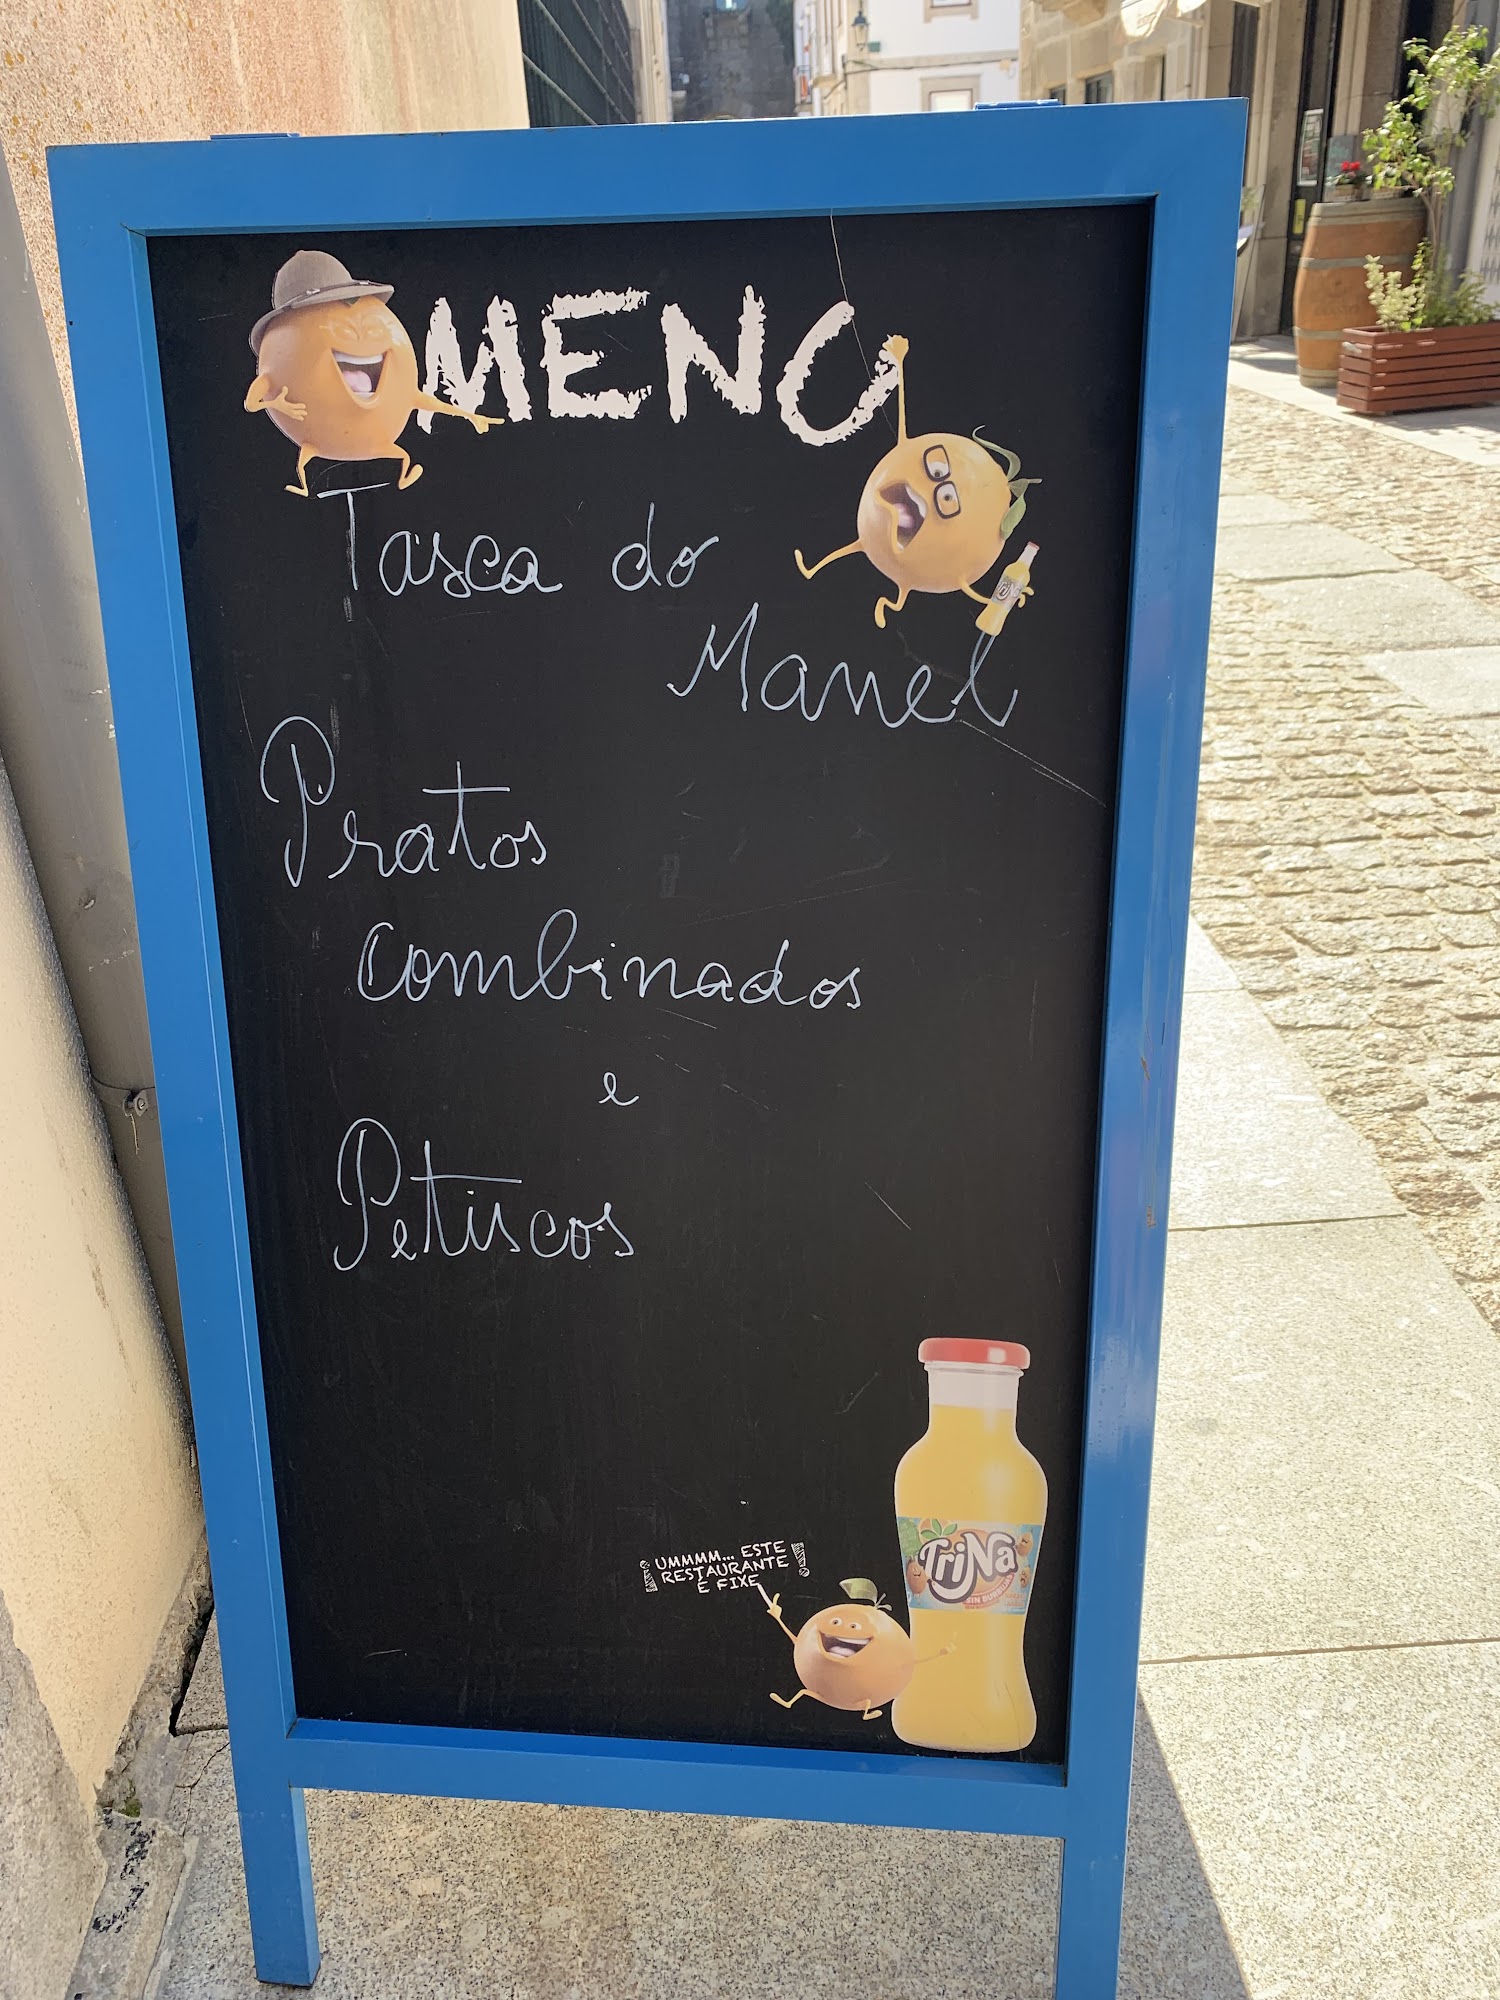 MENU
Tasca do
Manel
Pratos
combinados
e
Petiscos
¡UMMMM... ESTE
RESTAURANTE
E FIXE!
TriNa
SIN BURBUJAS